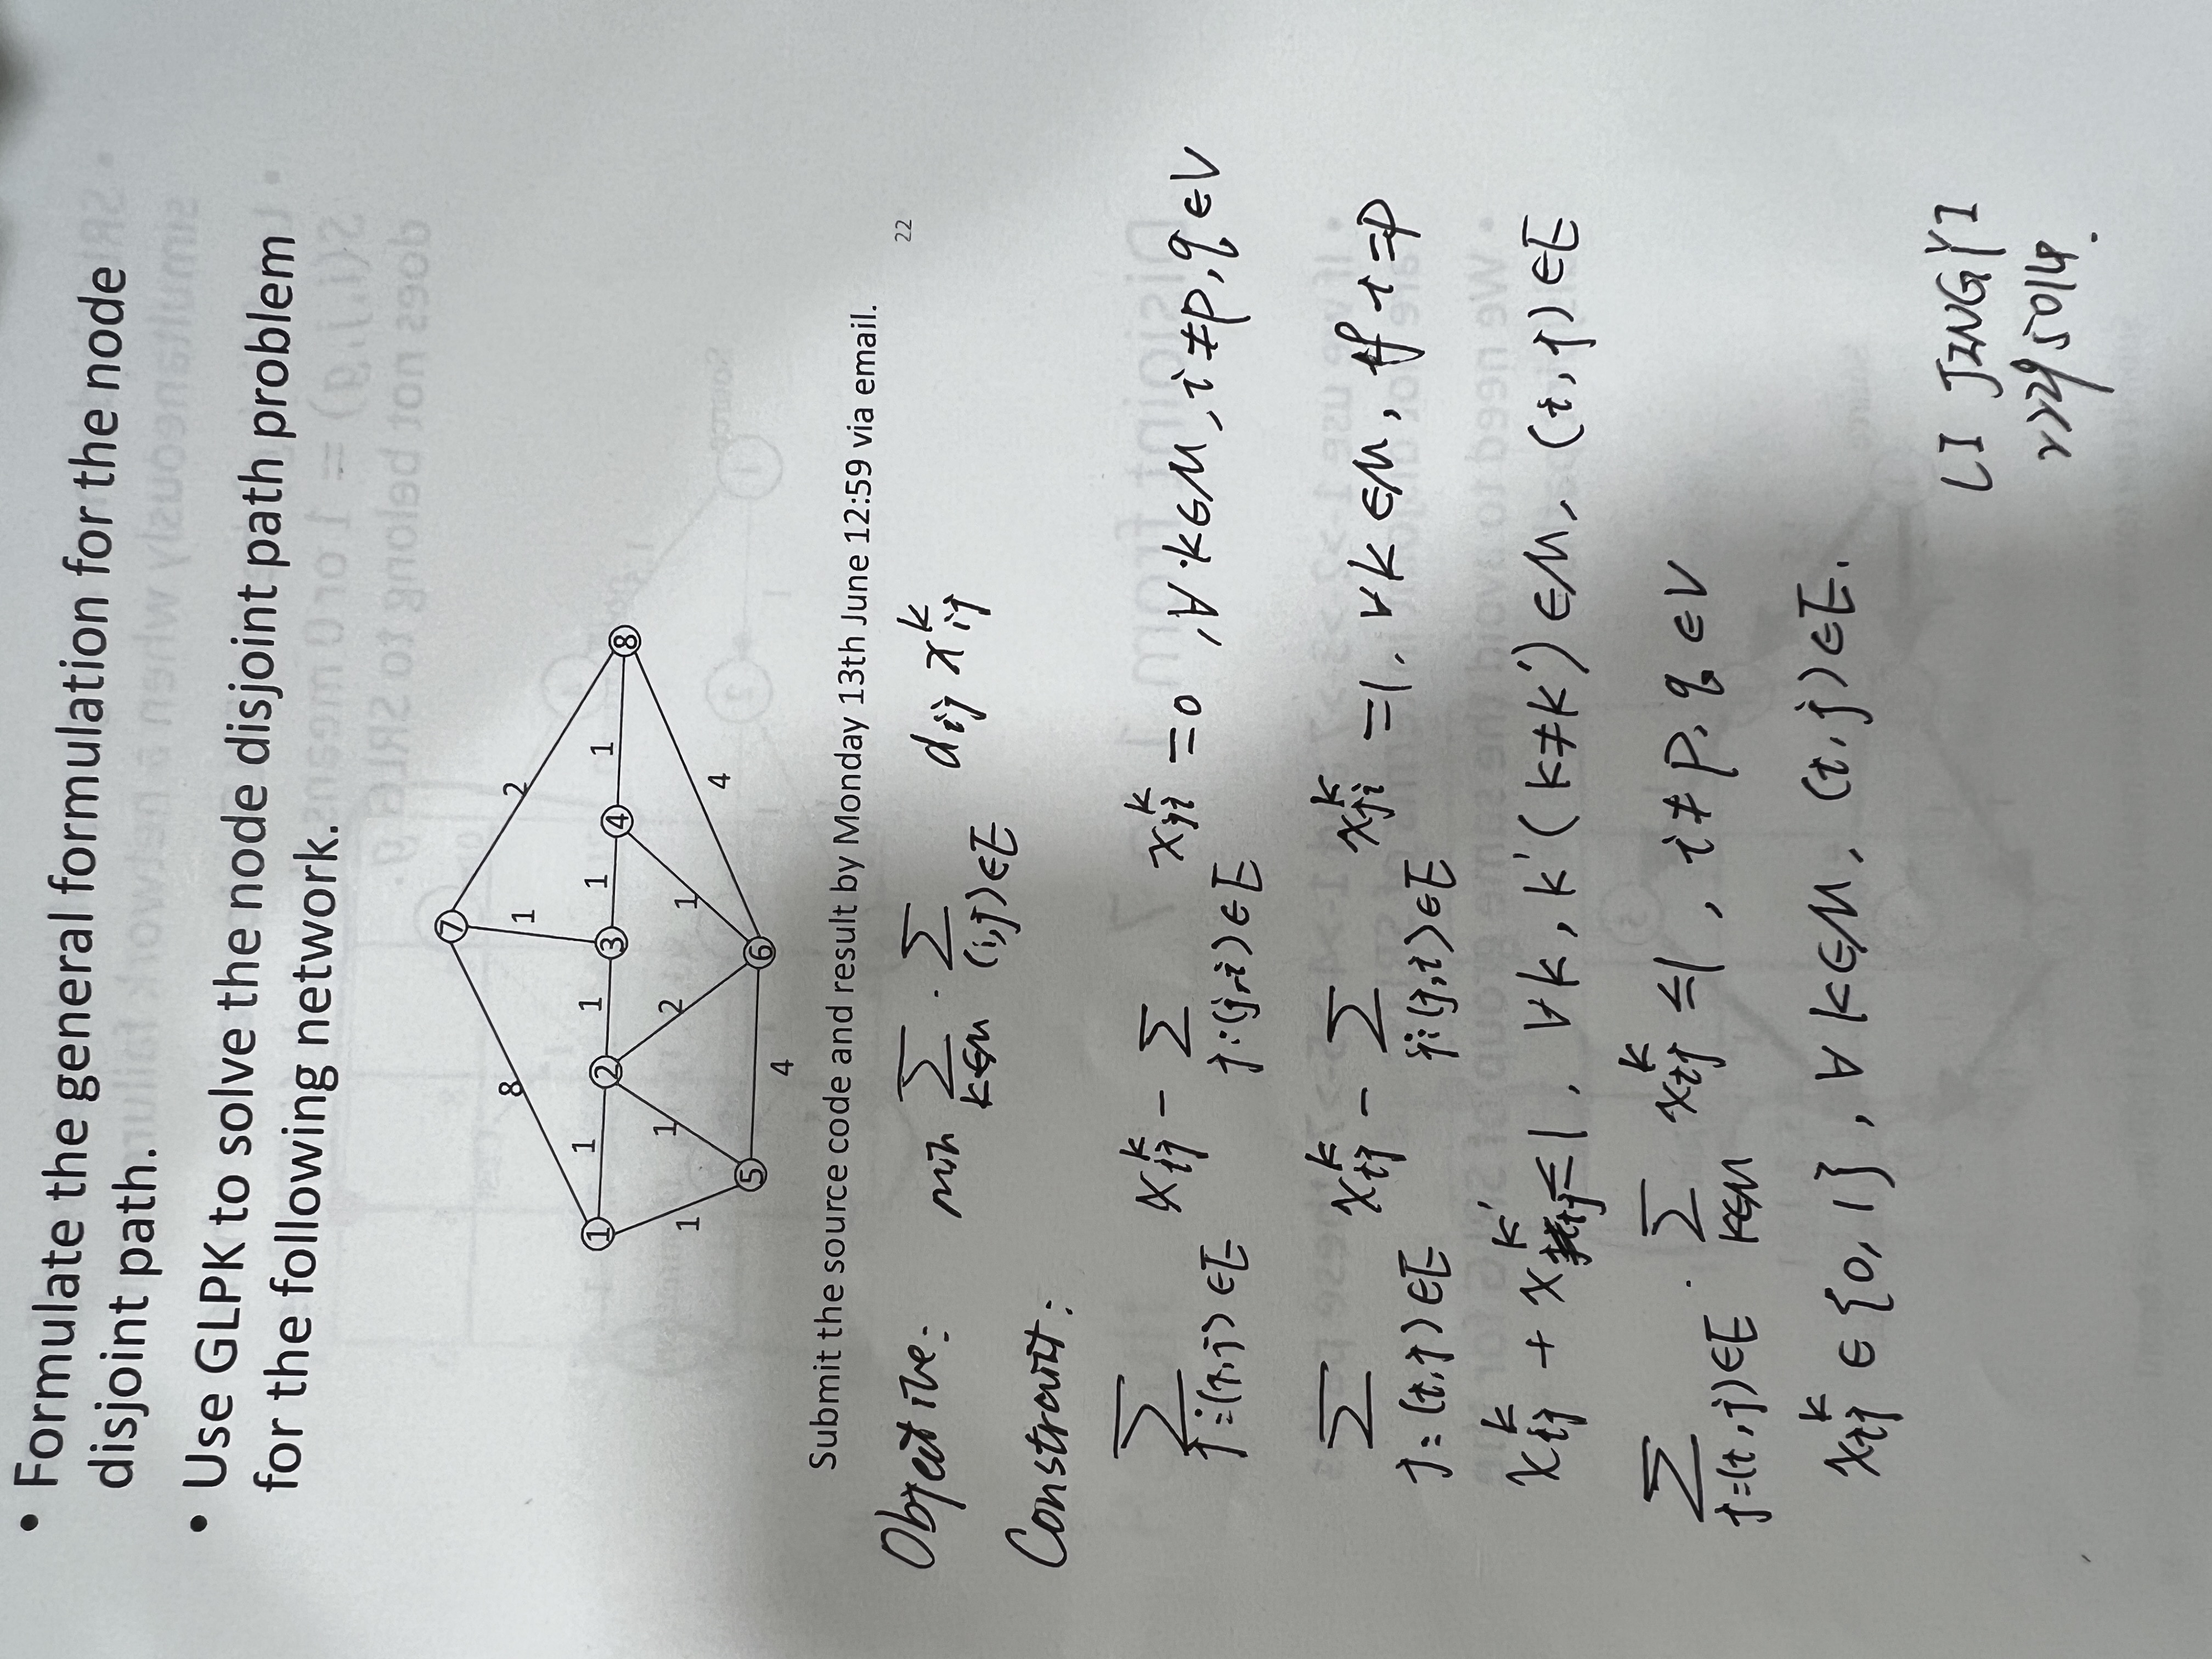 • Formulate the general formulation for the node
disjoint path.
• Use GLPK to solve the node disjoint path problem
for the following network.
7
8
1
2
1
1
2
1
3
1
4
1
8
1
1
2
1
4
5
6
4
Submit the source code and result by Monday 13th June 12:59 via email.
22
Objective: min ∑_{k∈M} · ∑_{(i,j)∈E} d_{ij} x_{ij}^{k}
Constraint:
∑_{j:(i,j)∈E} x_{ij}^{k} - ∑_{j:(j,i)∈E} x_{ji}^{k} = 0, ∀ k∈M, i≠p,q ∈V
∑_{j:(i,j)∈E} x_{ij}^{k} - ∑_{j:(j,i)∈E} x_{ji}^{k} = 1, ∀k ∈M, if i=p
x_{ij}^{k} + x_{ij}^{k'} ≤ 1, ∀k, k'(k≠k') ∈M, (i,j) ∈E
∑_{j:(i,j)∈E} · ∑_{k∈M} x_{ij}^{k} ≤ 1, i≠p,q ∈V
x_{ij}^{k} ∈ {0,1}, ∀ k∈M, (i,j)∈E.
LI JINGYI